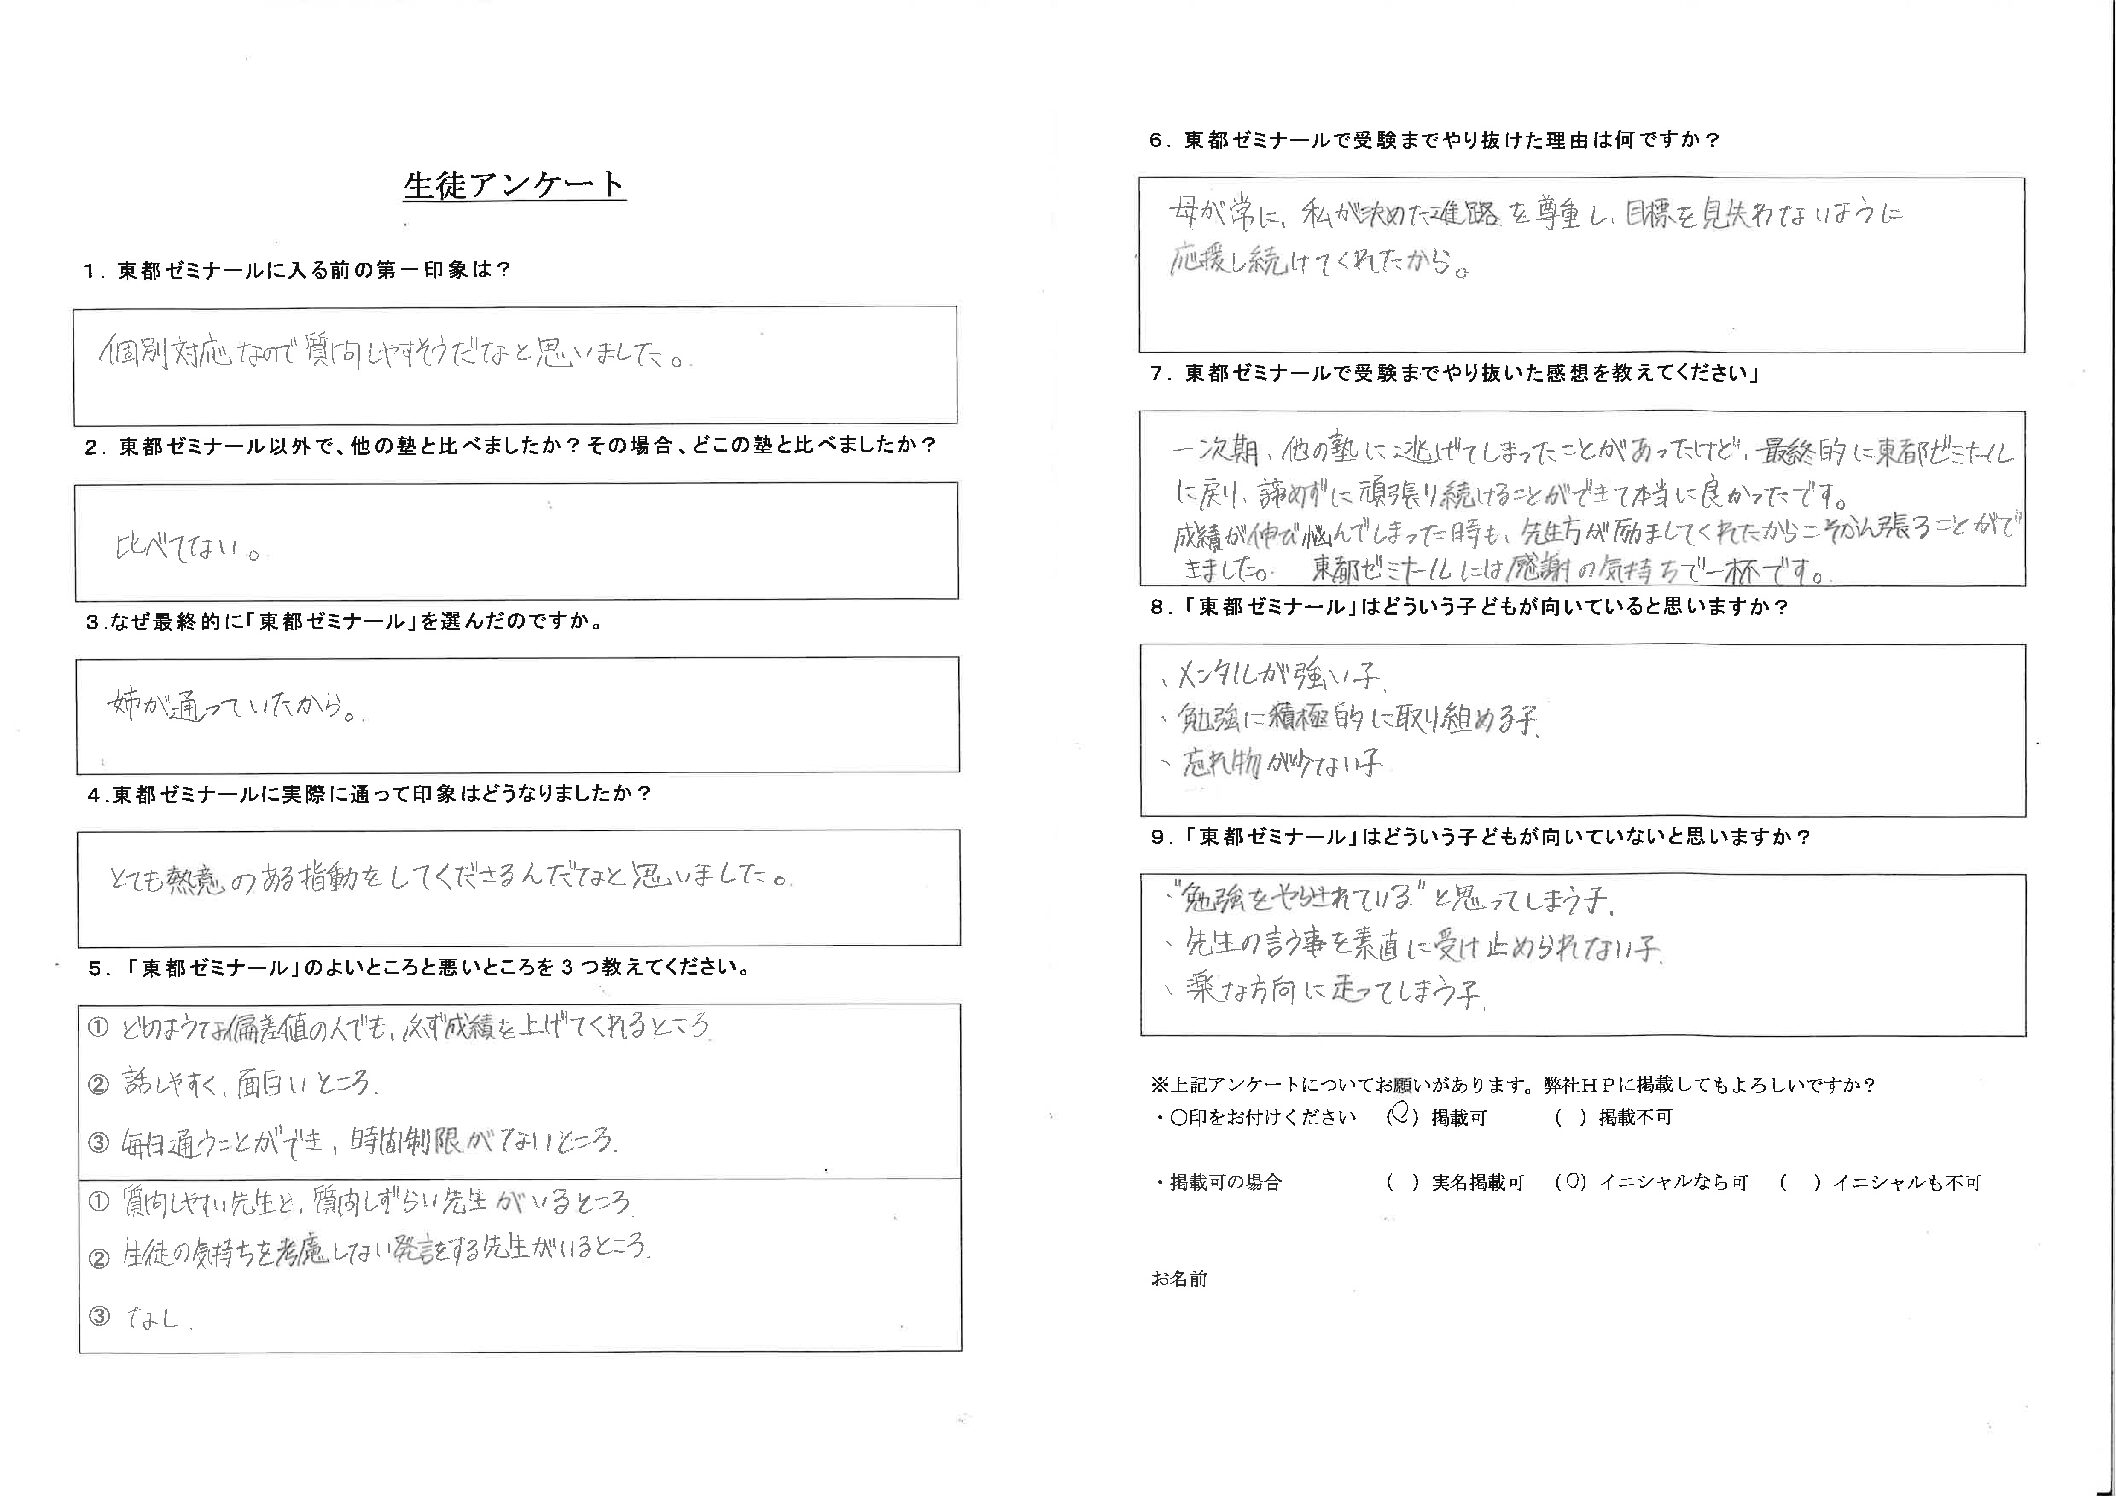 生徒アンケート
1. 東都ゼミナールに入る前の第一印象は？
個別対応なので質問しやすそうだなと思いました。
2. 東都ゼミナール以外で、他の塾と比べましたか？その場合、どこの塾と比べましたか？
比べてない。
3.なぜ最終的に「東都ゼミナール」を選んだのですか。
姉が通っていたから。
4.東都ゼミナールに実際に通って印象はどうなりましたか？
とても熱意のある指動をしてくださるんだなと思いました。
5. 「東都ゼミナール」のよいところと悪いところを3つ教えてください。
① どのような偏差値の人でも、必ず成績を上げてくれるところ.
② 話しやすく、面白いところ.
③ 毎日通うことができ、時間制限がないところ.
① 質問しやすい先生と、質問しずらい先生がいるところ.
② 生徒の気持ちを考慮しない発言をする先生がいるところ.
③ なし.
6. 東都ゼミナールで受験までやり抜けた理由は何ですか？
母が常に、私が決めた進路を尊重し、目標を見失わないように
応援し続けてくれたから。
7. 東都ゼミナールで受験までやり抜いた感想を教えてください」
一次期、他の塾に逃げてしまったことがあったけど、最終的に東都ゼミナール
に戻り、諦めずに頑張り続けることができて本当に良かったです。
成績が伸び悩んでしまった時も、先生方が励ましてくれたからこそがん張ることがで
きました。 東都ゼミナールには感謝の気持ちで一杯です。
8. 「東都ゼミナール」はどういう子どもが向いていると思いますか？
、メンタルが強い子.
、勉強に積極的に取り組める子.
、忘れ物が少ない子
9. 「東都ゼミナール」はどういう子どもが向いていないと思いますか？
、"勉強をやらされている"と思ってしまう子.
、先生の言う事を素直に受け止められない子.
、楽な方向に走ってしまう子.
※上記アンケートについてお願いがあります。弊社HPに掲載してもよろしいですか？
・〇印をお付けください (〇) 掲載可 ( ) 掲載不可
・掲載可の場合 ( ) 実名掲載可 (〇) イニシャルなら可 ( ) イニシャルも不可
お名前